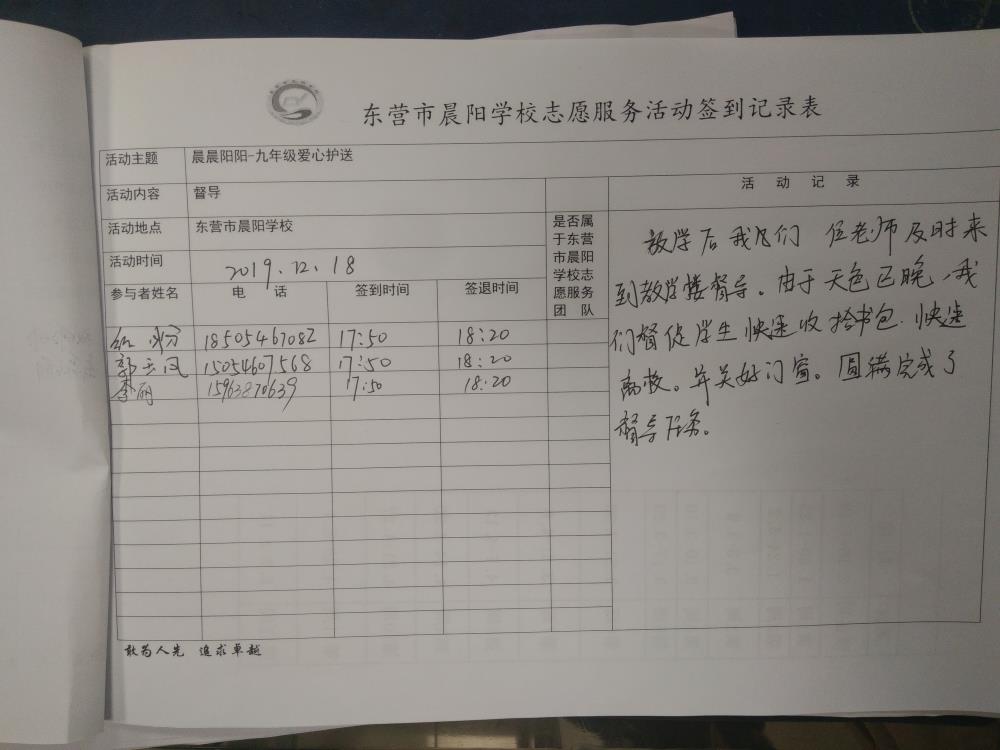 东营市晨阳学校志愿服务活动签到记录表
活动主题 晨晨阳阳-九年级爱心护送
活动内容 督导
活动地点 东营市晨阳学校
活动时间 2019.12.18
参与者姓名 电 话 签到时间 签退时间
是否属
于东营
市晨阳
学校志
愿服务
团 队
18505467082 17:50 18:20
郭玉凤 15054607568 17:50 18:20
李丽 15963870639 17:50 18:20
活 动 记 录
放学后我们 位老师及时来
到教学楼督导。由于天色已晚,我
们督促学生快速收拾书包.快速
离校。并关好门窗。圆满完成了
督导任务。
敢为人先 追求卓越